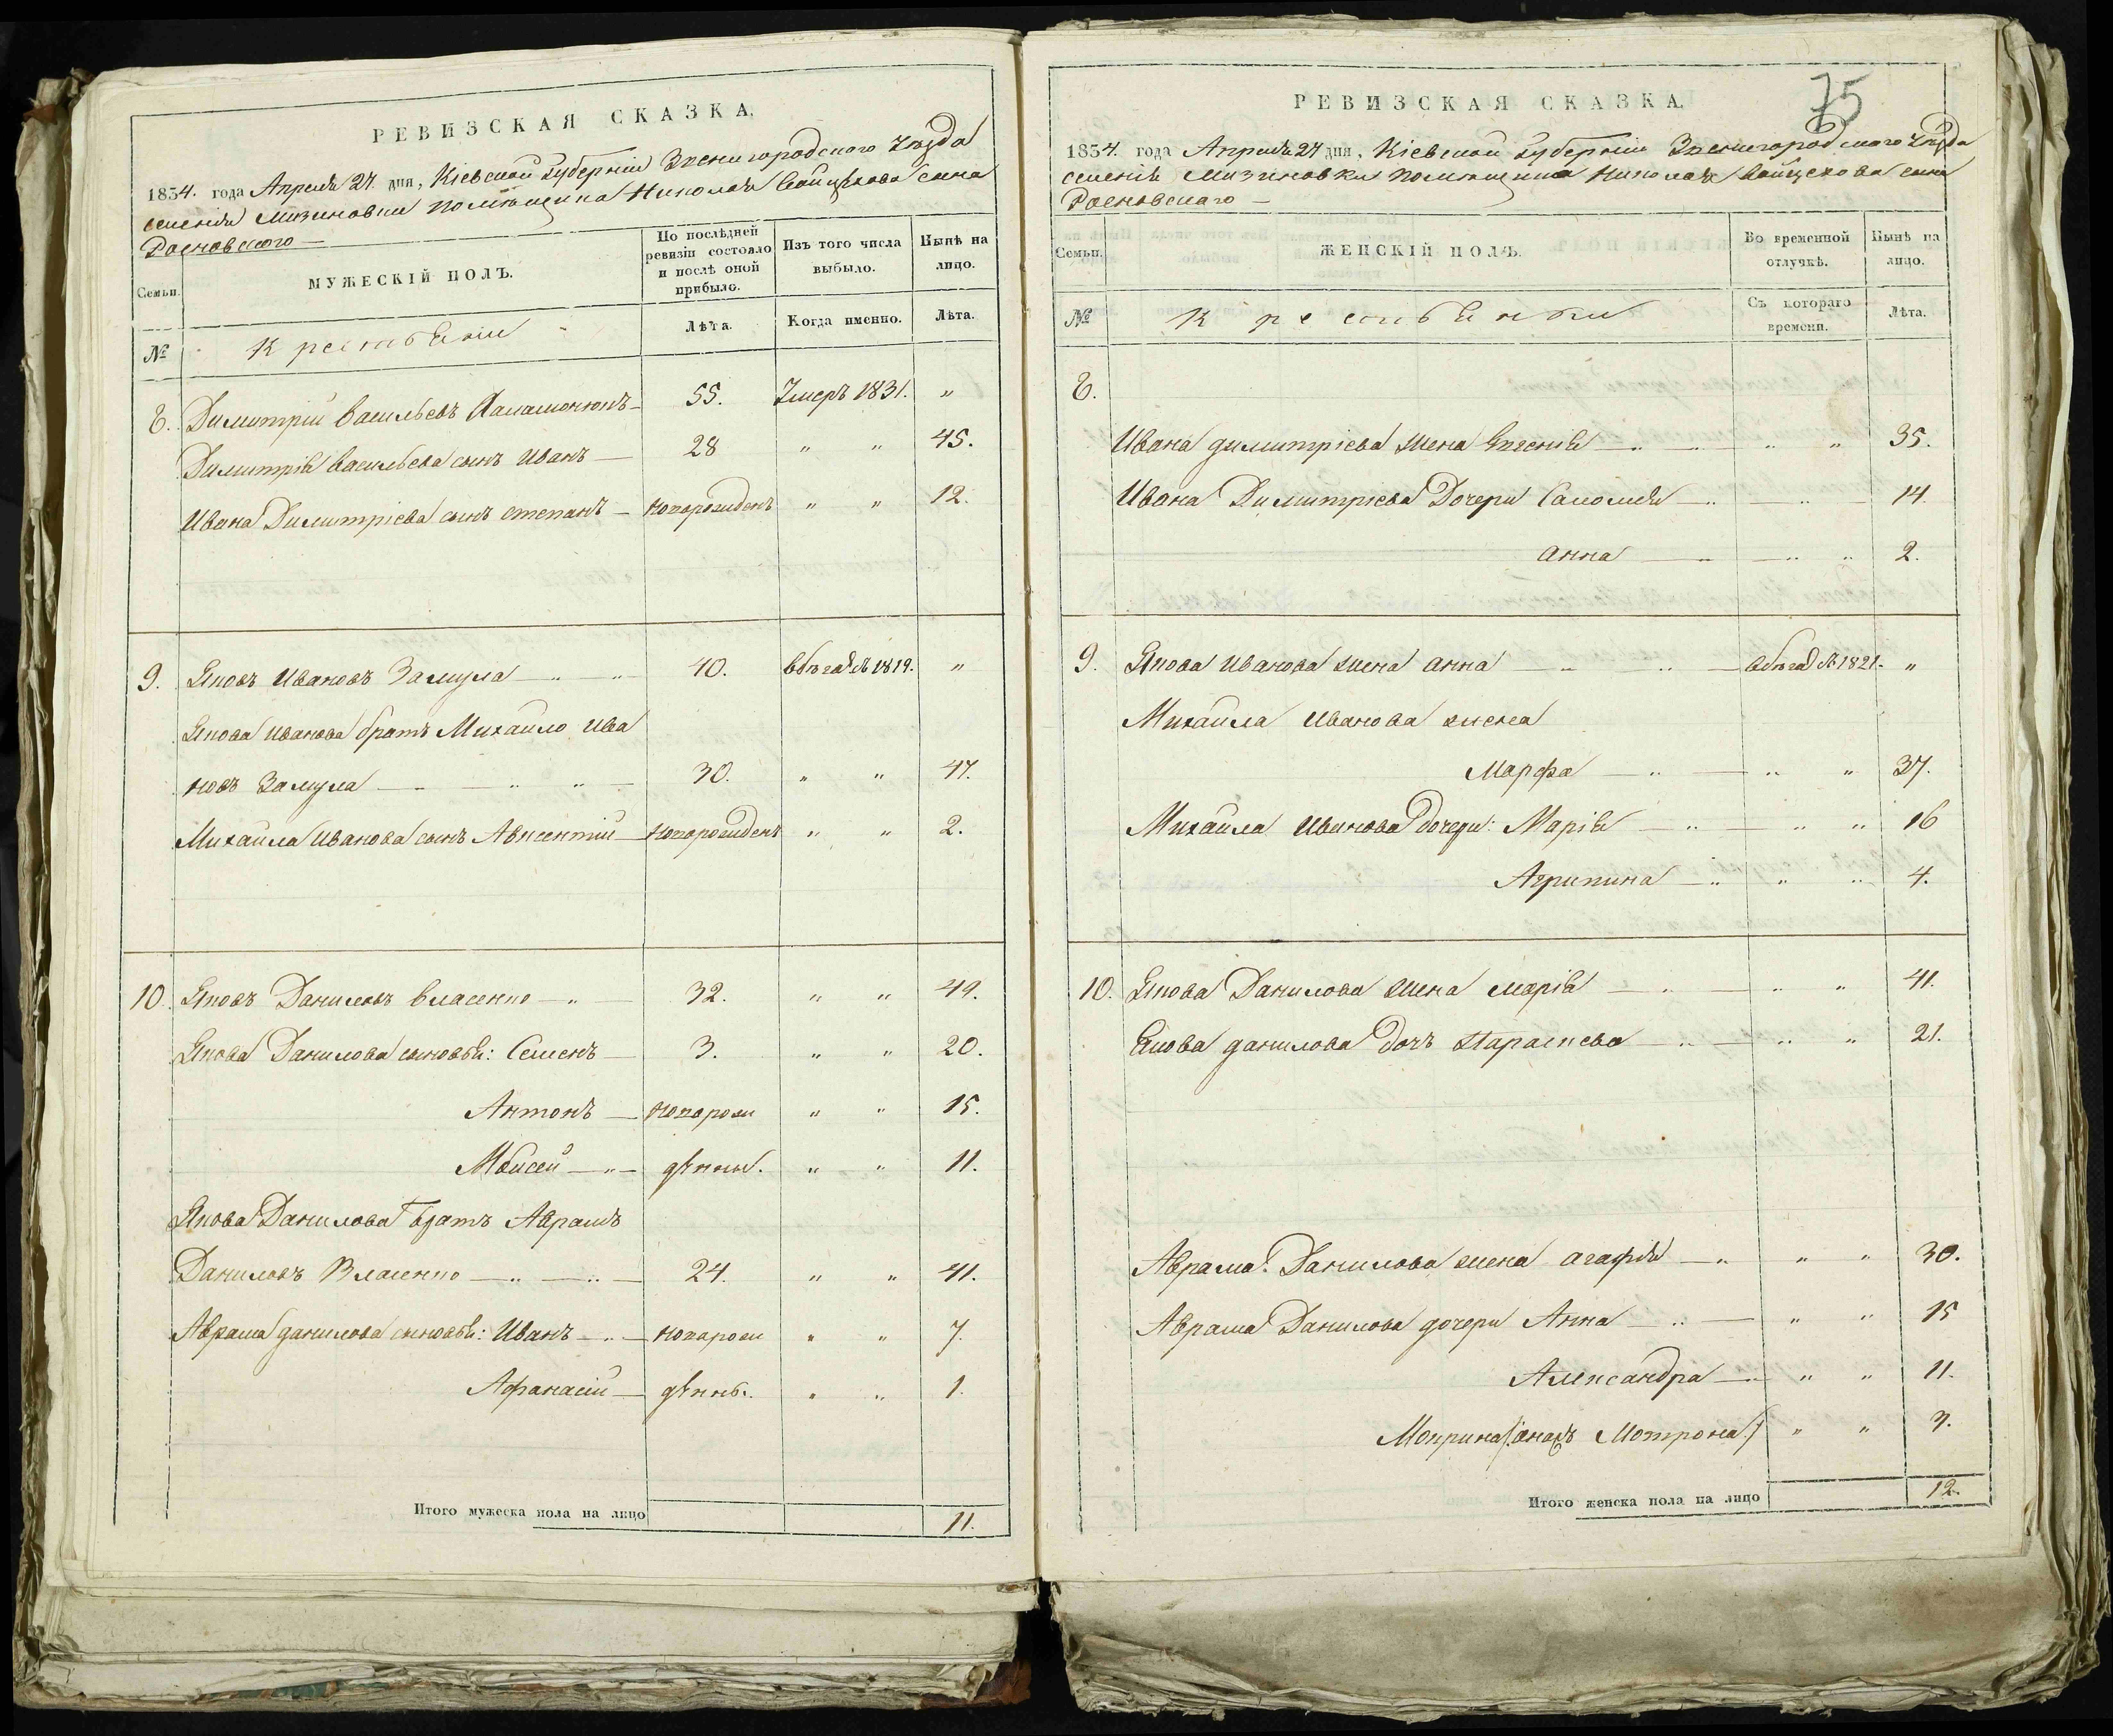 РЕВИЗСКАЯ СКАЗКА.
1834. года Апреля 24 дня, Кіевской Губерніи Звенигородского Уезда
селенія Мизиновки помѣщика Николая Войцехова сына
Росновского —
Семьи.
МУЖЕСКІЙ ПОЛЪ.
По послѣдней ревизіи состояло и послѣ оной прибыло.
Изъ того числа выбыло.
Нынѣ на лицо.
№
Крестьяни
Лѣта.
Когда именно.
Лѣта.
8. Димитрій Васильевъ — 55. Умеръ 1831. „
Димитрія Васильева сынъ Иванъ — 28 „ „ 45.
Ивана Димитріева сынъ Степанъ — новорожденъ „ „ 12.
9. Яковъ Ивановъ Замула — „ „ 40. в бѣгахъ 1819. „
Якова Иванова братъ Михайло Ива
новъ Замула — „ — „ „ — 30. „ „ 47.
Михайла Иванова сынъ Авксентій — новорожденъ „ „ 2.
10. Яковъ Даниловъ Власенко — „ — 32. „ „ 49.
Якова Данилова сыновья: Семенъ — 3. „ „ 20.
Антонъ — новорож „ „ 15.
Мойсей — „ — дѣнны. „ „ 11.
Якова Данилова братъ Аврамъ
Даниловъ Власенко — „ — „ — 24. „ „ 41.
Аврама Данилова сыновья: Иванъ — „ — новорож „ „ 7.
Афанасій — дѣнны. „ „ 1.
Итого мужеска пола на лицо 11.
75
РЕВИЗСКАЯ СКАЗКА.
1834. года Апреля 24 дня, Кіевской Губерніи Звенигородского Уезда
селенія Мизиновки помѣщика Николая Войцехова сына
Росновскаго —
Семьи.
ЖЕНСКІЙ ПОЛЪ.
Во временной отлучкѣ.
Нынѣ на лицо.
№
Крестьянки
Съ котораго времени.
Лѣта.
8.
Ивана Димитріева жена Евгенія — „ — „ „ 35.
Ивана Димитріева Дочери Саломия — „ — „ — 14.
Анна — „ — „ „ 2.
9. Якова Иванова жена Анна — „ „ — в бѣгахъ 1821. „
Михайла Иванова жена
Марфа — „ — „ „ 37.
Михайла Иванова дочери: Марія — „ — „ „ 16
Агрипина — „ „ „ 4.
10. Якова Данилова жена Марія — „ — „ „ 41.
Якова Данилова дочъ Параскева — „ — „ „ 21.
Аврама Данилова жена Агафия — „ „ „ 30.
Аврама Данилова дочери Анна — „ — „ „ 15
Александра — „ „ „ 11.
Мокрина /: Мотрона :/ „ „ 7.
Итого женска пола на лицо 12.